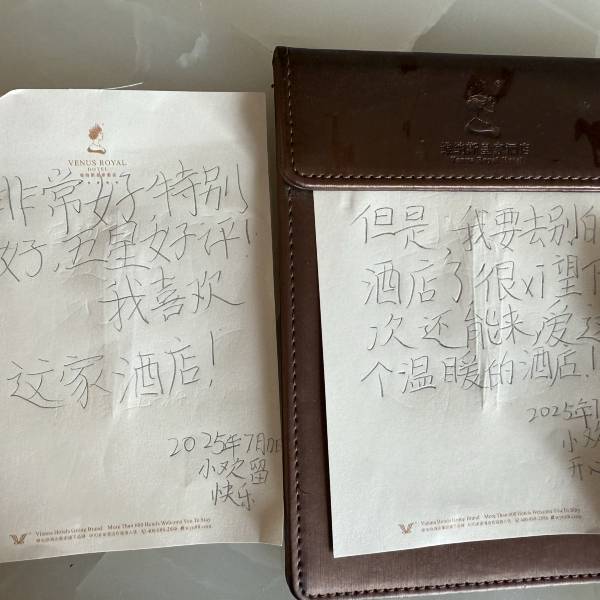 VENUS ROYAL
HOTEL
非常好特别
好,五星好评!
我喜欢
这家酒店!
2025年7月
小欢留
快乐
Vienna Hotels Group Brand More Than 600 Hotels Welcome You To Stay
维纳斯皇家酒店
Venus Royal Hotel
但是,我要去别的
酒店了很xi望下
次还能来爱这
个温暖的酒店!
2025年7
小欢
开心
Vienna Hotels Group Brand More Than 600 Hotels Welcome You To Stay